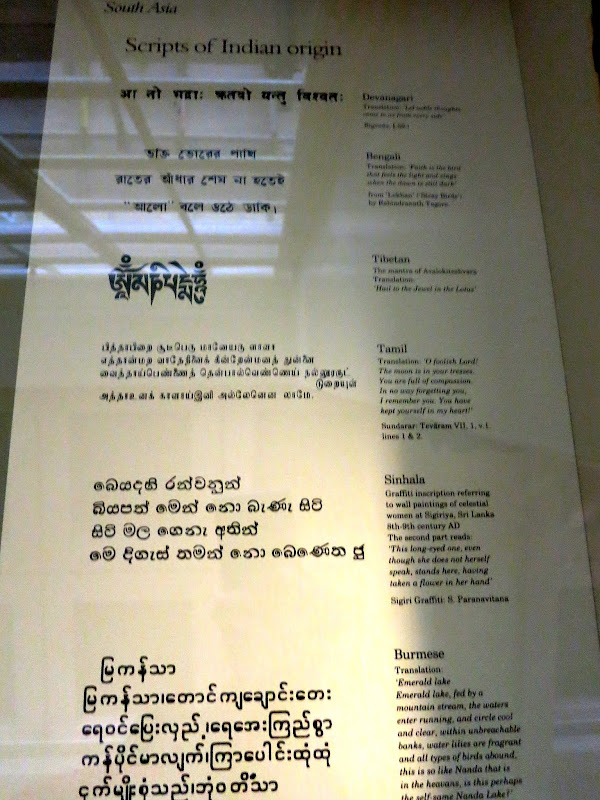 South Asia
Scripts of Indian origin
आ नो भद्राः क्रतवो यन्तु विश्वतः
Devanagari
Translation: 'Let noble thoughts
come to us from every side'
Rigveda, I-89-i
ভক্তি ভোরের পাখি
রাতের আঁধার শেষ না হতেই
"আলো" বলে ওঠে ডাকি।
Bengali
Translation: 'Faith is the bird
that feels the light and sings
when the dawn is still dark'
from 'Lekhan' ('Stray Birds')
by Rabindranath Tagore
ༀམཎིཔདྨེཧཱུྃ
Tibetan
The mantra of Avalokiteshvara
Translation:
'Hail to the Jewel in the Lotus'
பித்தாபிறை சூடிபெரு மானேயரு ளாளா
எத்தான்மற வாதேநினைக் கின்றேன்மனத் துன்னை
வைத்தாய்பெண்ணைத் தென்பால்வெண்ணெய் நல்லூரருட்
டுறையுள்
அத்தாஉனக் காளாய்இனி அல்லேனென லாமே.
Tamil
Translation: 'O foolish Lord!
The moon is in your tresses.
You are full of compassion.
In no way forgetting you,
I remember you. You have
kept yourself in my heart!'
Sundarar: Tevāram VII, 1, v.1,
lines 1 & 2.
බෙයදහි රන්වනුන්
බියපත් මෙන් නො බැණැ සිටි
සිටි මල ගෙනැ අතින්
මෙ දිගැස් තමන් නො බෙණෙත ජු
Sinhala
Graffiti inscription referring
to wall paintings of celestial
women at Sigiriya, Sri Lanka
8th-9th century AD
The second part reads:
'This long-eyed one, even
though she does not herself
speak, stands here, having
taken a flower in her hand'
Sigiri Graffiti: S. Paranavitana
မြကန်သာ
မြကန်သာ၊တောင်ကျချောင်းတေး
ရေဝင်ပြေးလှည့်၊ရေအေးကြည်စွာ
ကန်ပိုင်မာလျက်၊ကြာပေါင်းထုံထုံ
ငှက်မျိုးစုံသည်၊ဘုံဝတိံသာ
Burmese
Translation:
'Emerald lake
Emerald lake, fed by a
mountain stream, the waters
enter running, and circle cool
and clear, within unbreachable
banks, water lilies are fragrant
and all types of birds abound,
this is so like Nanda that is
in the heavens, is this perhaps
the self-same Nanda Lake?'